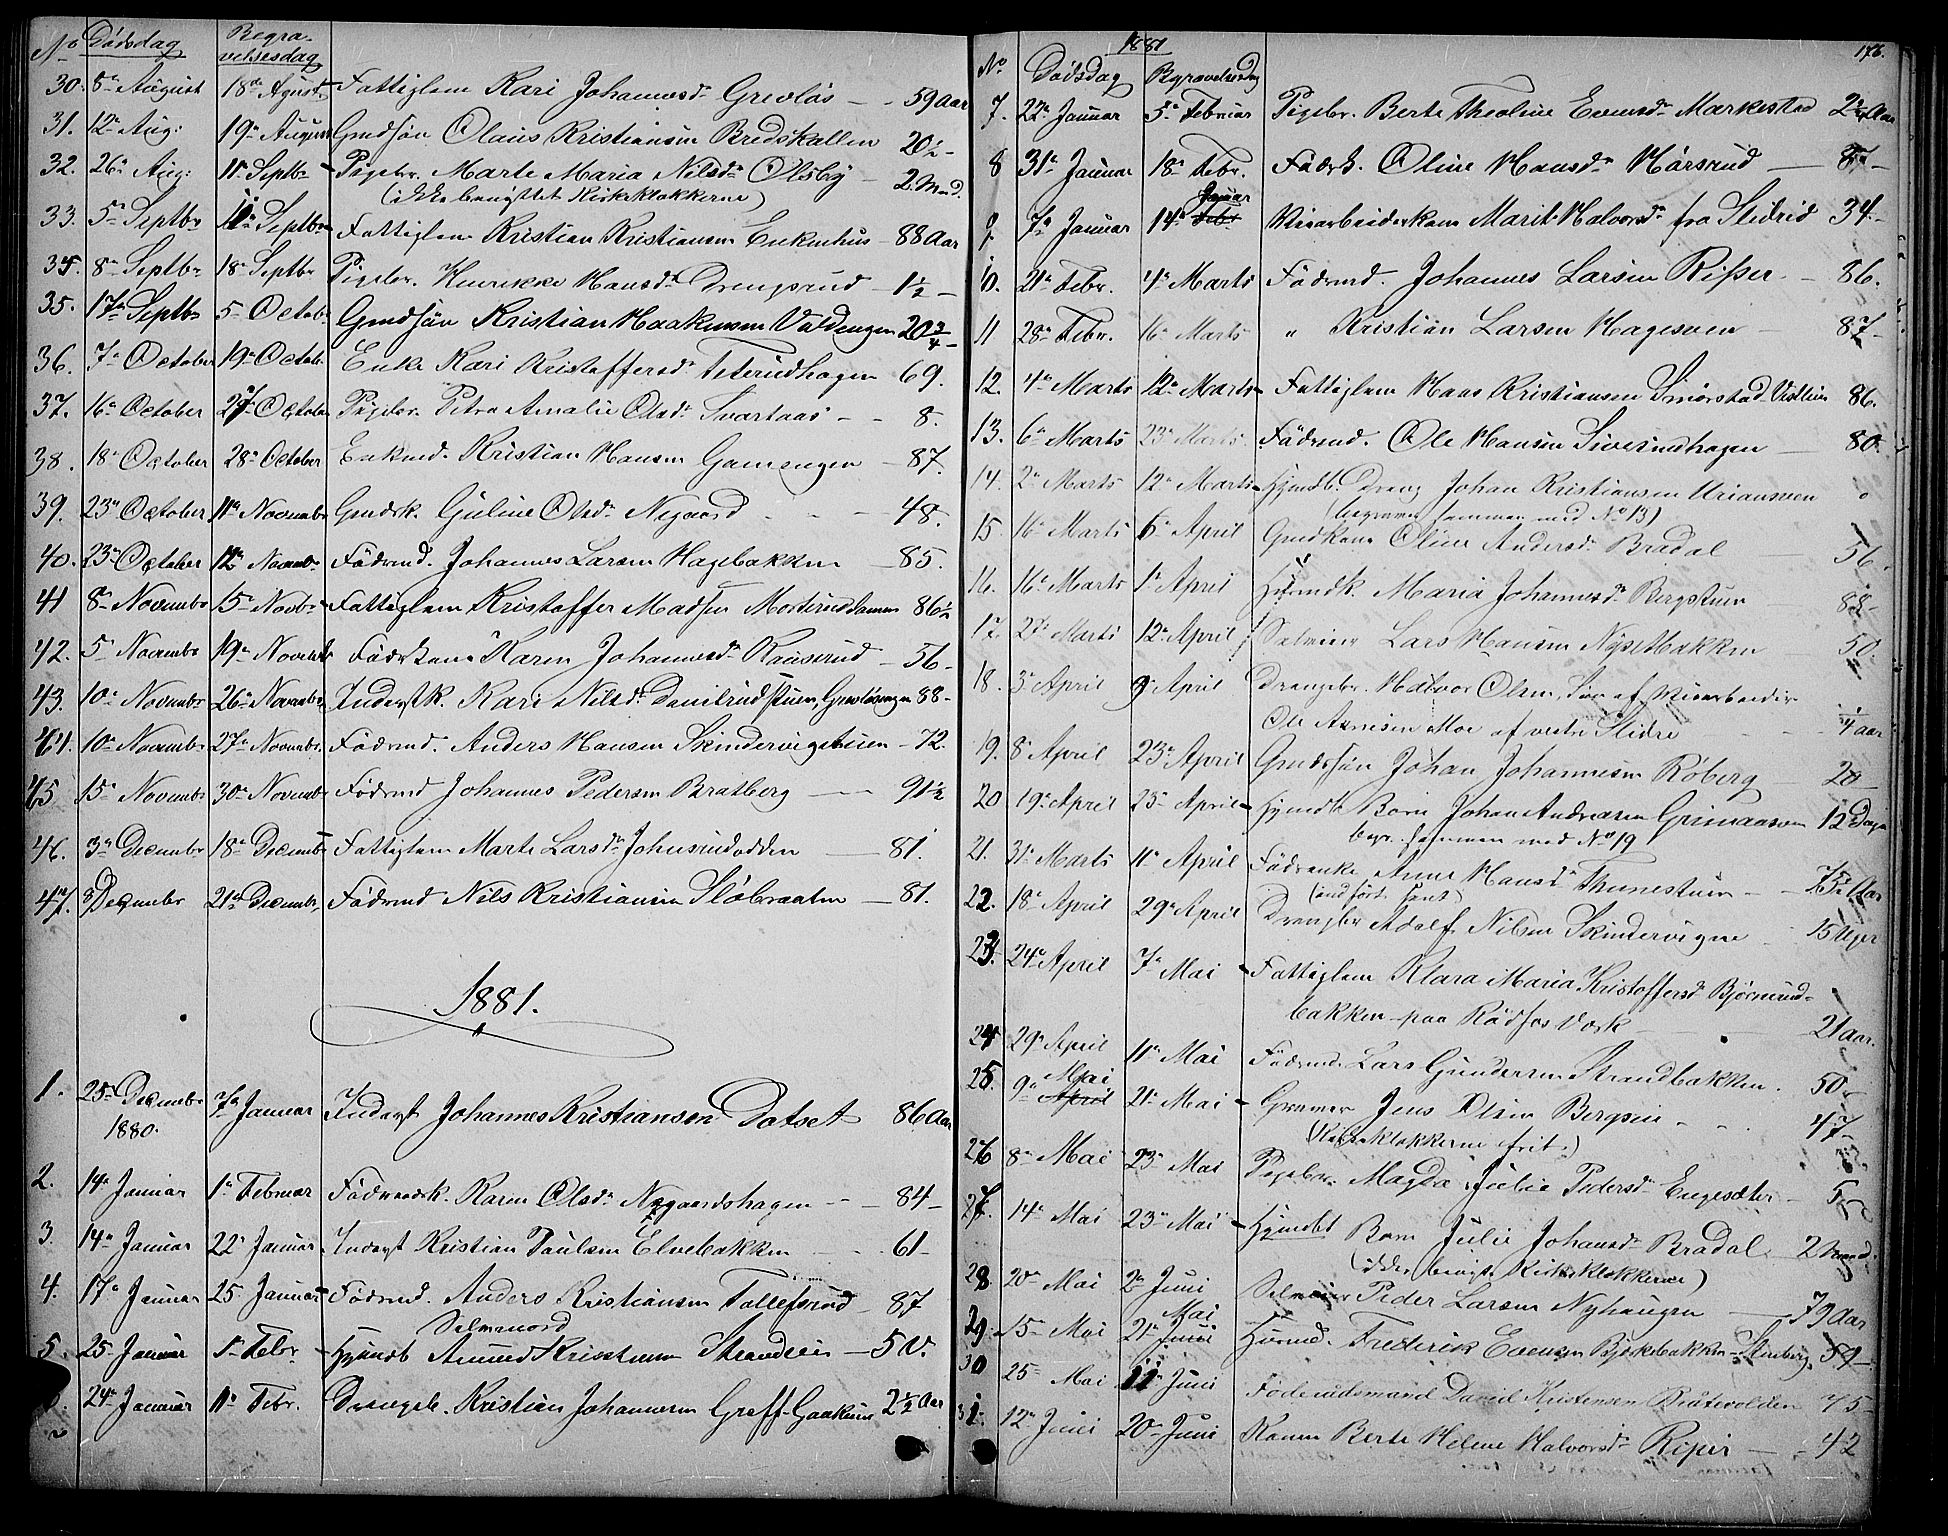 No Dødsdag Begra-
velsesdag
30. 8de August 18de Agust Fattiglem Kari Johannesd. Grevlös - - 59 Aar
31. 12te Aug: 19de August Gmdsön Olaus Kristiansen Bredskallen 20½ -
32. 26de Aug: 11te Septbr Pigebr. Marte Maria Nilsd. Olsby - 2. Mnd.
(ikke benyttet Kirkeklokkerne)
33. 5te Septbr 11te Septbr Fattiglem Kristian Kristiansen Enkenhus - 88 Aar
34. 8de Septbr 18de Septbr Pigebr. Henrikke Hansd. Drengsrud - 1½ -
35. 17de Septbr 5te Octob. Gmdsön Kristian Haakensen Valdengen 20¾ -
36. 7de October 19de Octob. Enke Kari Kristoffersd. Feterudhagen 69.
37. 16de October 27de Octob. Pigebr. Petra Amalie Olsd. Svartaas - - 8.
38. 18de October 28de October Enkmd. Kristian Hansen Gamengen - 87.
39. 23de October 11te Novembr Gmdsk. Guline Olsd. Nygaard - - - 48.
40. 23de October 12te Novembr. Födrmd. Johannes Larsen Hagebakken - 85.
41 8de Novembr 15de Novbr. Fattiglem Kristoffer Madsen Morterud 86½
42. 5te Novembr 19de Novembr Födrkone Karen Johannesd. Rauserud - 56 -
43. 10de Novembr 26de Novembr. Inderstk. Kari Nilsd. Danielrudstuen, Grevlösengen 88 -
44. 10de Novembr 27de Novembr. Födrmd. Anders Hansen Skindervigstuen - 72.
45 15de Novembr 30de Novembr Födrmd Johannes Pedersen Bratberg - 91½
46. 3de Decembr 18de Decembr Fattiglem Marte Larsd. Johnsrudodden - 81.
47. 8de Decembr 21de Decembr, Födrmd Nils Kristiansen Slöbraaten - 81.
1881.
1. 25de Decembr 7de Januar Inderst Johannes Kristiansen Dotset 86 Aar
1880.
2. 14de Januar 1te Februar Födraadsk. Karen Olsd. Nygaardshagen - - 84 -
3. 14de Januar 22de Januar Inderst Kristian Paulsen Elvebakken - 61 -
4. 17de Januar 25 Januar Födrmd. Anders Kristiansen Tollefsrud - 87
Selvmord
5. 25de Januar 1te Febr. Hjemdb Amund Kristiansen - 5 U.
24de Januar 11te Febr. Drengeb. Kristian Johannesen Greff-Gaakuen 2½ Aar
1881
176.
No Dödsdag Begravelsesdag
7. 22de Januar 5te Februar Pigebr. Berte Theoline Evensd. Markestad 2½ Aar
8 31te Januar 18de Febr. Födrk. Oline Hansd. Hårsrud - 87 -
Januar
9 7de Januar 14de Febr Veiarbeiderkone Marit Halvorsd. fra Slidrid 34 -
10. 21de Febr. 4de Marts Födrmd. Johannes Larsen Risser - 86.
11 28de Febr. 16de Marts " Kristian Larsen Hagesveen - 87 -
12. 4de Marts 12te Marts Fattiglem Hans Kristiansen Smörstad-Vestlien 86.
13. 6te Marts 23de Marts Födrmd. Ole Hansen Siverindhagen - 80.
14. 2de Marts 12te Marts Hjemdb. Dreng Johan Kristiansen Uriansveen 0
(begraven sammen med No 13)
15. 16de Marts 6te April Gmdkone Oline Andersd. Bradal - 56.
16. 16de Marts 1te April Maria Johannesd. Bergstuen 88 -
17. 27de Marts 12te April Selveier Lars Hansen Nysetbakken - 50.
18. 3de April 9de April Drengebr. Halvor Olsen, Sön af Veiarbeider
Ole Arnesen Moe af vestre Slidre - - ¼ Aar
19. 8de April 23de April Gmdssön Johan Johannesen Röberg 20 -
20 19de April 23de April Hjemdb Barn Johan Andreasen Grimaasveen 12 Dage
begr. sammen med No 19
21. 31te Marts 11te April Födrenke Anne Hansd. Thunestuen - - 75½ Aar
22. 18de April 29de April Drengebr Adolf Nilsen Skindervigne 15 Uger
23. 24de April 7de Mai Fattiglem Klara Maria Kristoffersd. Björnerud-
bakken - paa Rådsos Værk - 21 aar.
24 29de April 11te Mai Födrmd. Lars Gundersen Strandbakken. 50 -
Mai
25. 9de April 21de Mai Jens Olsen Bergseie - - - 47 -
(Kirkeklokkerne frit.)
26 8de Mai 23de Mai Pigebr. Magda Julie Pedersd. Engesæter - 5
27. 14de Mai 23de Mai Hjemdbt Barn Julie Johansd. Bradal. 2 Maaned.
(ikke benytt Kirkeklokkerne)
28 20de Mai 2de Juni Selveier Peder Larsen Nyhaugen - 79 Aar
Mai
29. 15de Mai 21de Juni Husmd. Frederik Evensen Björkebakken-Stenberg, 59 -
30 25de Mai 11te Juni Föderaadsmand David Kristensen Bratevolden 75 -
31. 12te Juni 20de Juni Konen Berte Helene Halvorsd. Ripir - 42